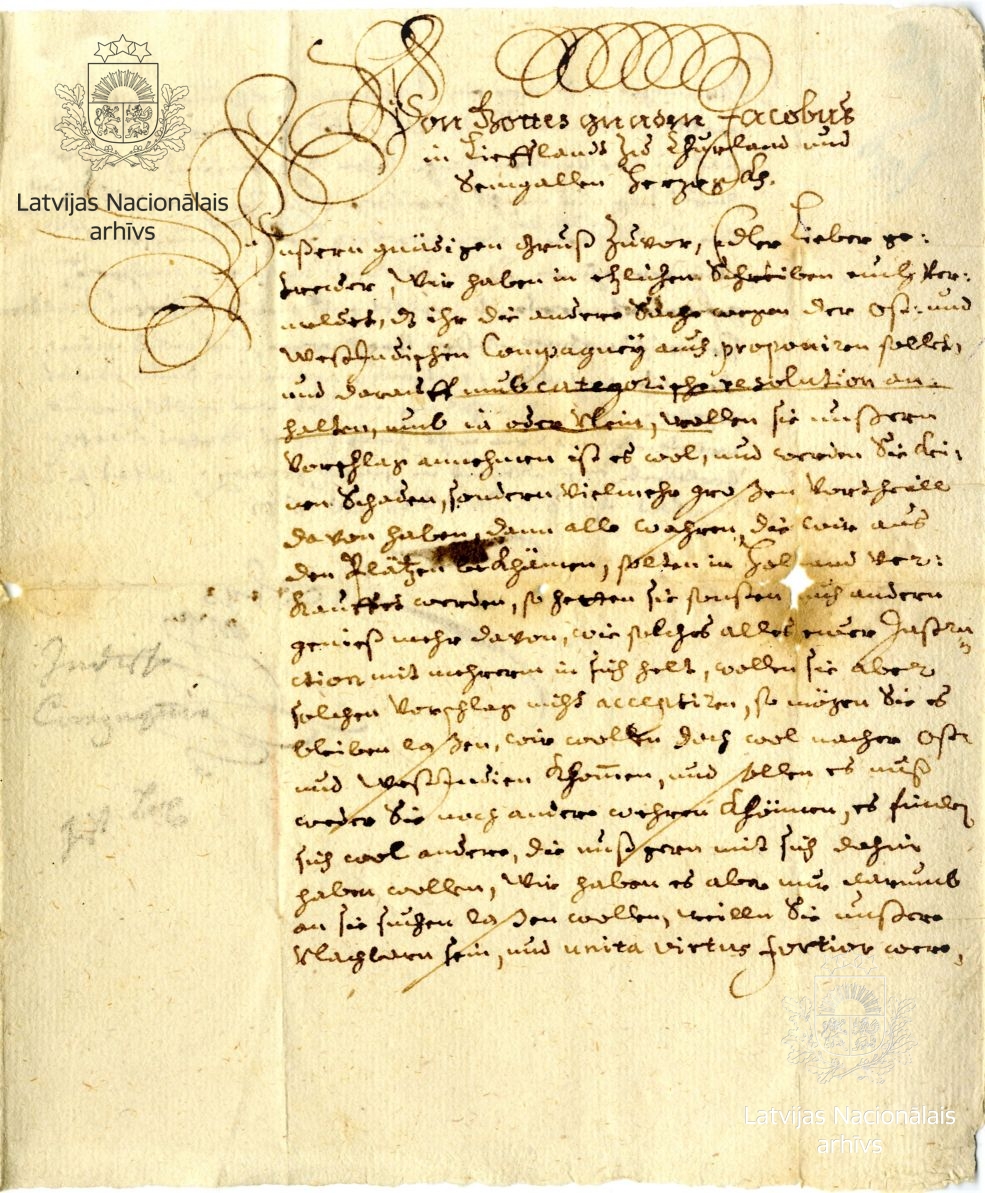 Latvijas Nacionālais
arhīvs
Von Gottes gnaden Jacobus
in Liefflandt zu Churland und
Semgallen Herzog &.
Unßern gnädigen Gruß zuvor, Edler Lieber ge:
trewer, Wir haben in etzlichen Schreiben euch ver:
meldet, dz ihr die andere Sache wegen der Ost: und
West Indischen Compagney auch proponiren sollet,
und darauff umb categorische resolution an:
halten, umb ia oder Nein, wollen sie unßern
Vorschlag annehmen ist es wol, und werden Sie kei:
nen Schaden, sondern vielmehr großen Vortheill
davon haben, dann alle wahren, die wir aus
den Plätzen bekhämen, solten in Holland ver:
kaufft werden, so hetten sie sonsten auch andern
genieß mehr davon, wie solches alles ewer Instru
ction mit mehrerm in sich helt, wollen sie aber
solchen Vorschlag nicht acceptiren, so mögen Sie es
bleiben laßen, wir wollen doch wol nacher Ost
und West Indien khommen, und sollen es unß
weder Sie noch andere wehren khönnen, es finden
sich wol andere, die unß gern mit sich dahin
haben wollen, Wir haben es aber nur darumb
an sie suchen laßen wollen, weilln Sie unßere
Nachbarn sein, und unita virtus fortior were,
Indische
Compagnie
Latvijas Nacionālais
arhīvs